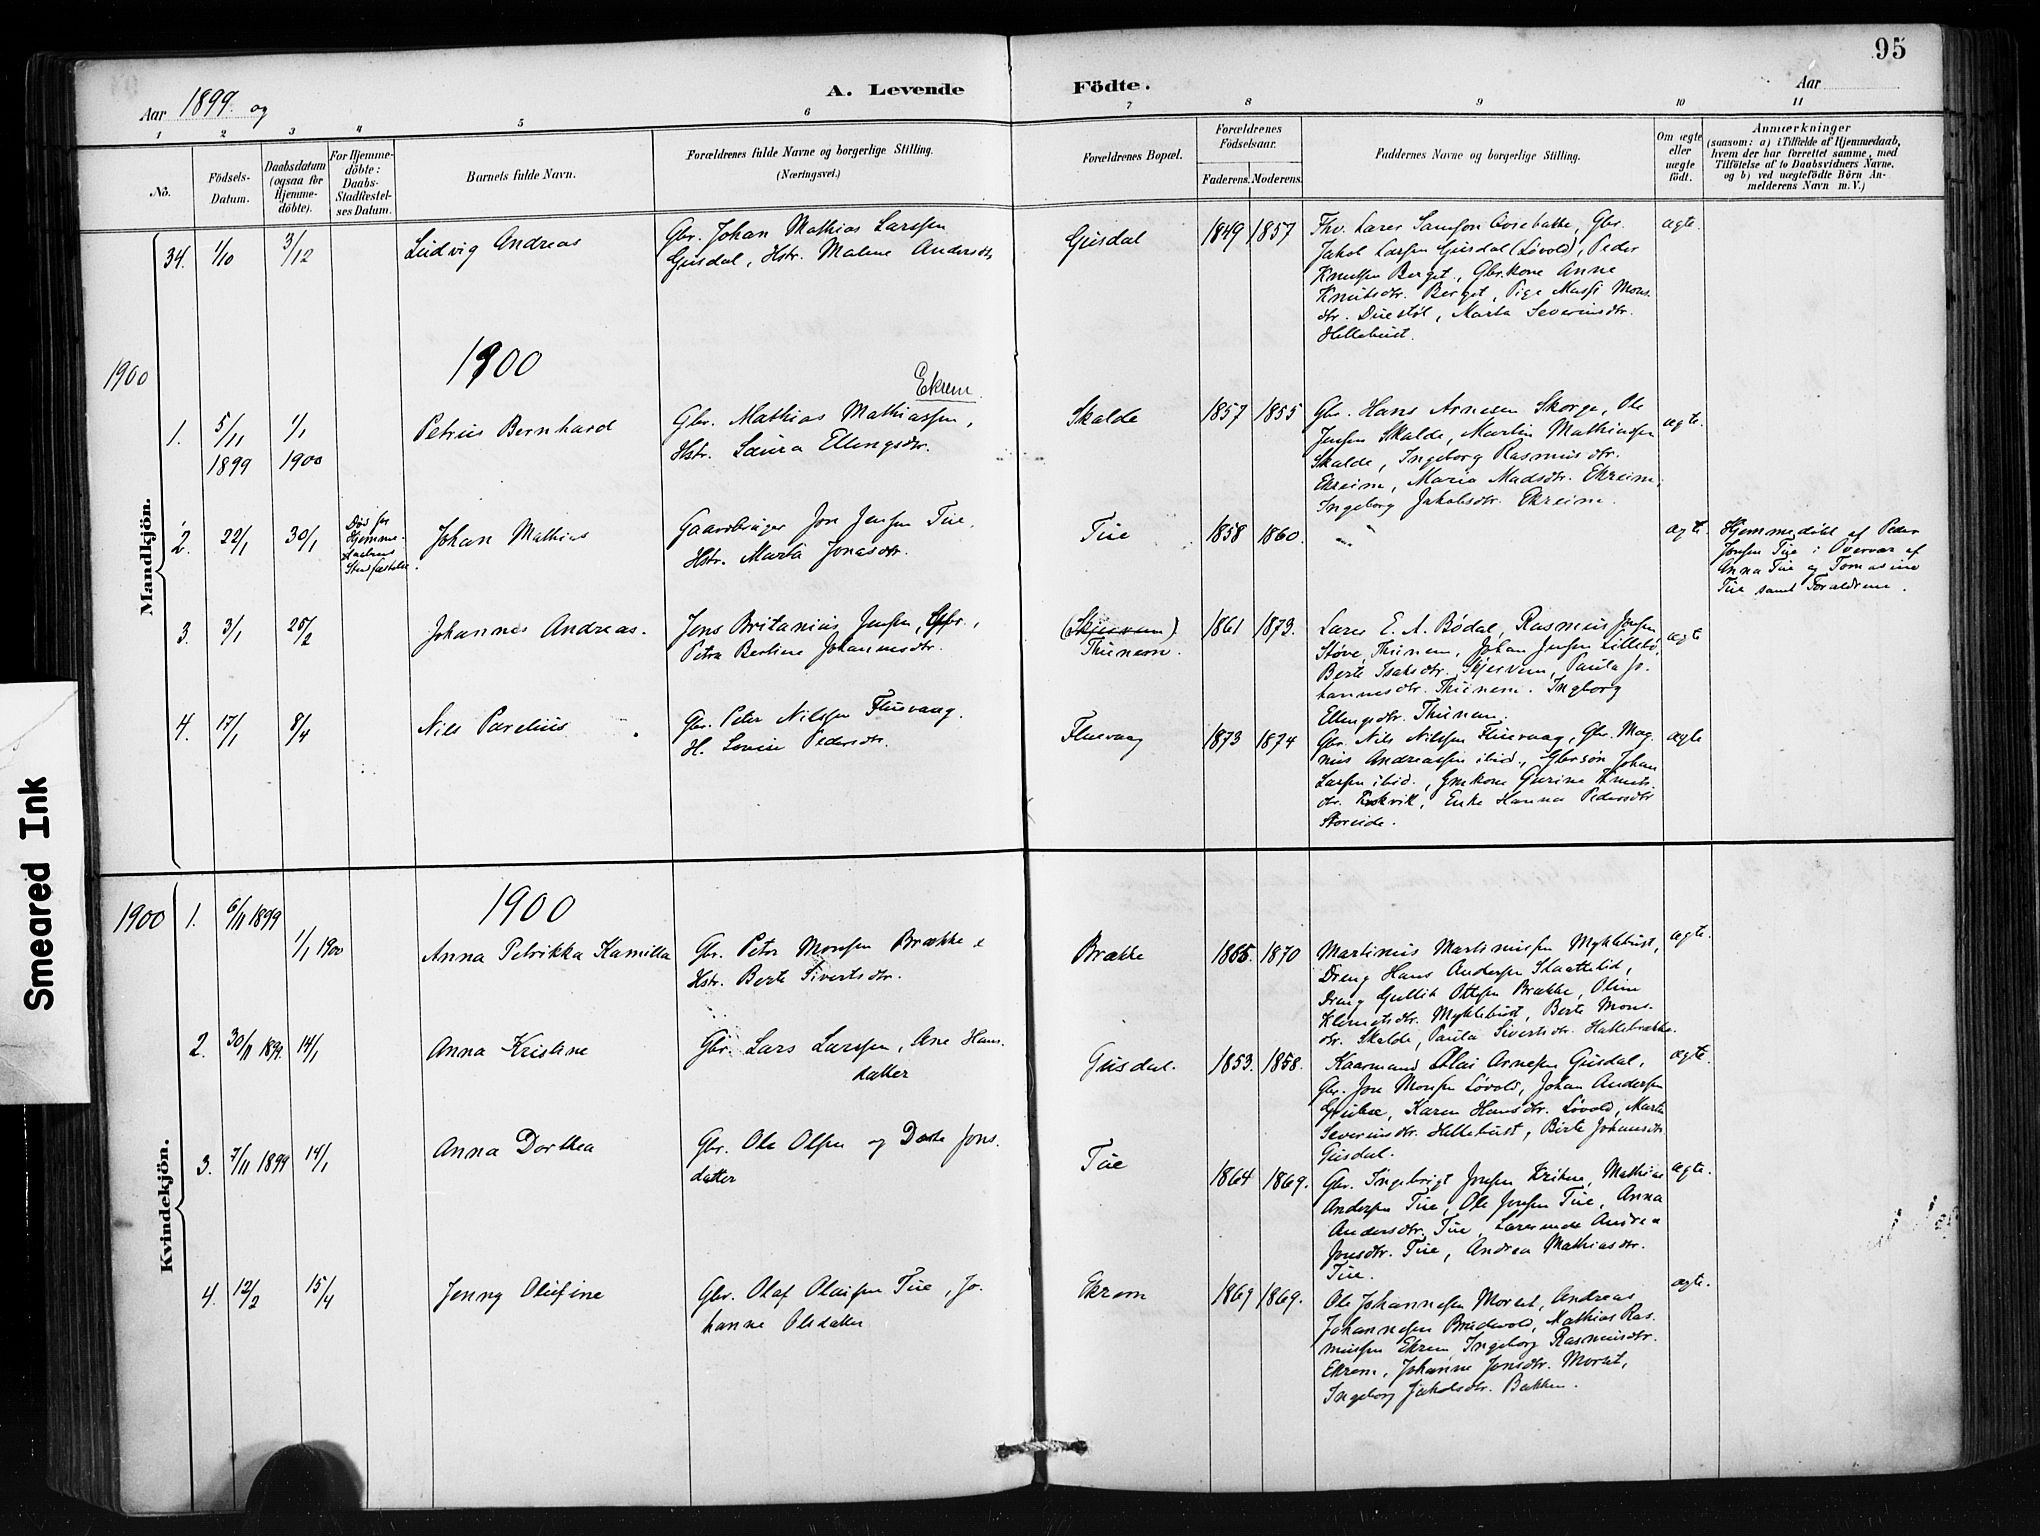 95
Aar 1899. og
A. Levende Födte.
Aar
1 2 3 4 5 6 7 8 9 10 11
No.
Födsels-
Datum.
Daabsdatum
(ogsaa for
Hjemme-
döbte).
For Hjemme-
döbte:
Daabs-
Stadfæstel-
ses Datum.
Barnets fulde Navn.
Forældrenes fulde Navne og borgerlige Stilling.
(Næringsvei.)
Forældrenes Bopæl.
Forældrenes
Födselsaar.
Faderens. Moderens.
Faddernes Navne og borgerlige Stilling.
Om ægte
eller
uægte
födt.
Anmærkninger
(saasom: a) i Tilfælde af Hjemmedaab,
hvem der har forrettet samme, med
Tilföielse af to Daabsvidners Navne.
og b) ved uægtefödte Börn An-
melderens Navn m. V.)
Mandkjön.
34. 1/10 3/12
Ludvig Andreas
Gbr. Johan Mathias Larssen
Gusdal, Hstr. Malene Andersdtr
Gusdal
1849 1857
Thv. Lars Samson Aasebakke, Gbr.
Jakob Larsen Gusdal (Løvold), Peder
Knutsen Berget, Gbr.kone Anne
Knutsdtr. Berget, Pige Massi Mons-
dtr. Duestøl, Marta Severinsdtr.
Hellebust.
ægte.
1900
1900
1. 5/11 1/1
1899 1900
Petrus Bernhard
Ekrem
Gbr. Mathias Mathiassen,
Hstr. Laura Ellingsdtr.
Skalde
1857 1855
Gbr. Hans Arnesen Skorge, Ole
Jensen Skalde, Martin Mathiassen
Skalde, Ingeborg Rasmusdtr.
Ekreim, Maria Madsdtr. Ekreim,
Ingeborg Jakobsdtr. Ekreim.
ægte.
2. 22/1 30/1
Død før
Hjemme-
daabens
Stadfæstelse.
Johan Mathias
Gaardbruger Jon Jensen Tue,
Hstr. Marta Jonasdtr.
Tue
1858 1860.
"
ægte
Hjemmedøbt af Peder
Jonsen Tue i Overvær af
Anna Tue og Tomasine
Tue samt Forældrene.
3. 3/1 25/2
Johannes Andreas.
Jens Britanius Jensen, Gbr.,
Petra Bertine Johannesdtr.
(Skjervem)
Thunem.
1861 1873.
Lars E. A. Bødal, Rasmus Jensen
Støve, Thunem, Johan Jensen Lillebø,
Berte Isaksdtr. Skjervem, Paula Jo-
hannesdtr. Thunem. Ingeborg
Ellingsdtr. Thunem.
ægte
4. 17/1 8/4
Nils Parelius
Gbr. Peter Nilssen Fluevaag.
H. Lovise Pedersdtr.
Fluevaag
1873 1874
Gbr. Nils Nilssen Fluevaag, Gbr. Mag-
nus Andreassen ibid., Gbrsøn Johan
Larsen ibid., Gmkone Gurine Knuts-
dtr. Eskvik, Enke Hanna Pedersdtr
Storeide.
ægte
Kvindekjön.
1900
1900
1. 6/11 1899
1/1 1900
Anna Petrikka Kamilla
Gbr. Petr Monsen Brække &
Hstr. Berte Sivertsdtr.
Brække
1865. 1870
Martinus Martinussen Myklebust,
Dreng Hans Andersen Staattelid,
Dreng Gullik Ottesen Brække, Oline
Klemetsdtr. Myklebust, Berte Mons-
dtr. Skalde, Paula Sivertsdtr. Haklebrække.
ægte.
2. 30/11 1899. 14/1
Anna Kristine
Gbr. Lars Larssen, Ane Hans-
datter
Gusdal.
1853. 1858.
Kaarmand Olai Arnesen Gusdal,
Gbr. Jon Monsen Løvold, Johan Andersen
Grubæ, Karen Hansdtr. Løvold, Marta
Severinsdtr. Hellebust, Berte Johansdtr
Gusdal.
ægte.
3. 7/11 1899 14/1
Anna Dorthea
Gbr. Ole Olsen og Dorte Jons-
datter
Tue
1864 1869.
Gbr. Ingebrigt Jonsen Kriken, Mathias
Andersen Tue, Ole Jonsen Tue, Anna
Andersdtr. Tue, Lærerinde Andrea
Jonsdtr. Tue, Andrea Mathiasdtr.
Tue.
ægte.
4. 12/2 15/4
Jenny Olufine
Gbr. Olaf Olaisen Tue, Jo-
hanne Olsdatter
Ekrem
1869 1869.
Ole Johannesen Morset, Andreas
Johannesen Bradvold, Mathias Ras-
mussen Ekrem, Ingeborg Rasmusdtr.
Ekrem, Johanne Jonsdtr. Morset,
Ingeborg Jakobsdtr. Bakken.
ægte.
Smeared Ink